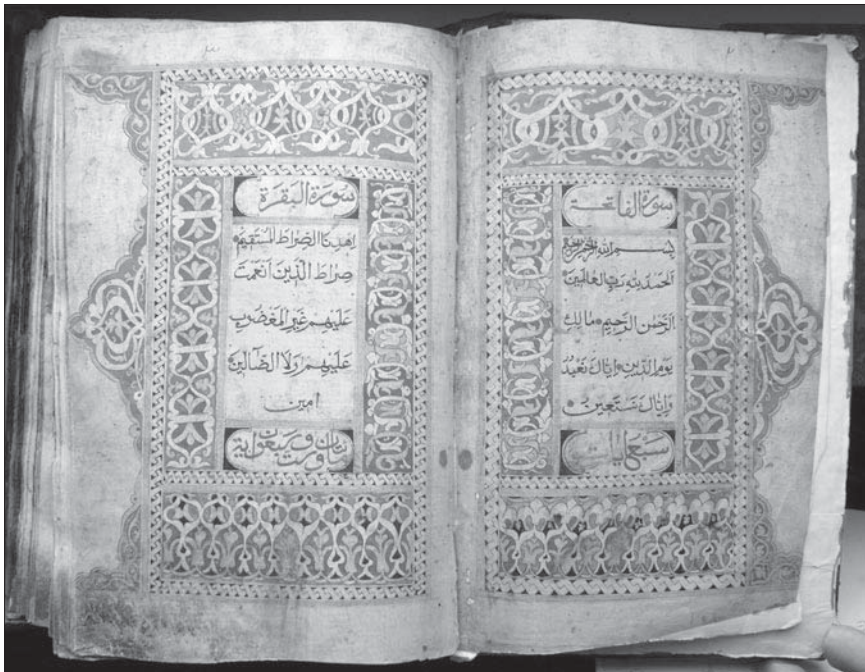 سورة الفاتحة
بسم الله الرحمن الرحيم
الحمد لله رب العالمين
الرحمن الرحيم مالك
يوم الدين اياك نعبد
واياك نستعين
سبع ايات
سورة البقرة
اهدنا الصراط المستقيم
صراط الذين انعمت
عليهم غير المغضوب
عليهم ولا الضالين
امين